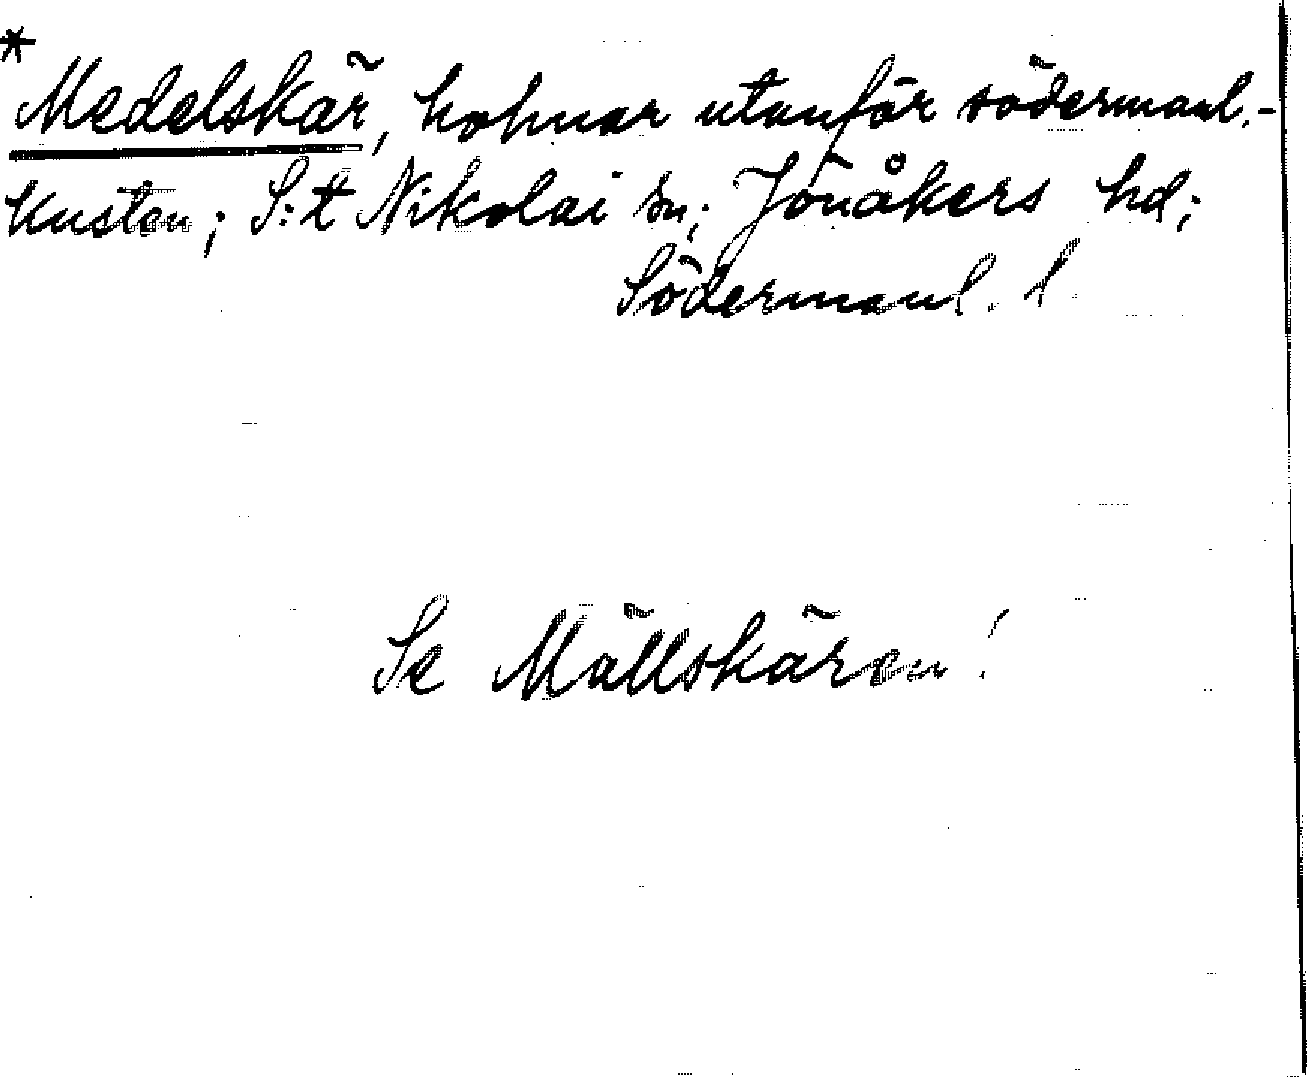 * Medelskär, holmar utanför södermanl.-
kusten; S:t Nikolai sn; Jönåkers hd;
Södermanl. l.
Se Mällskären!